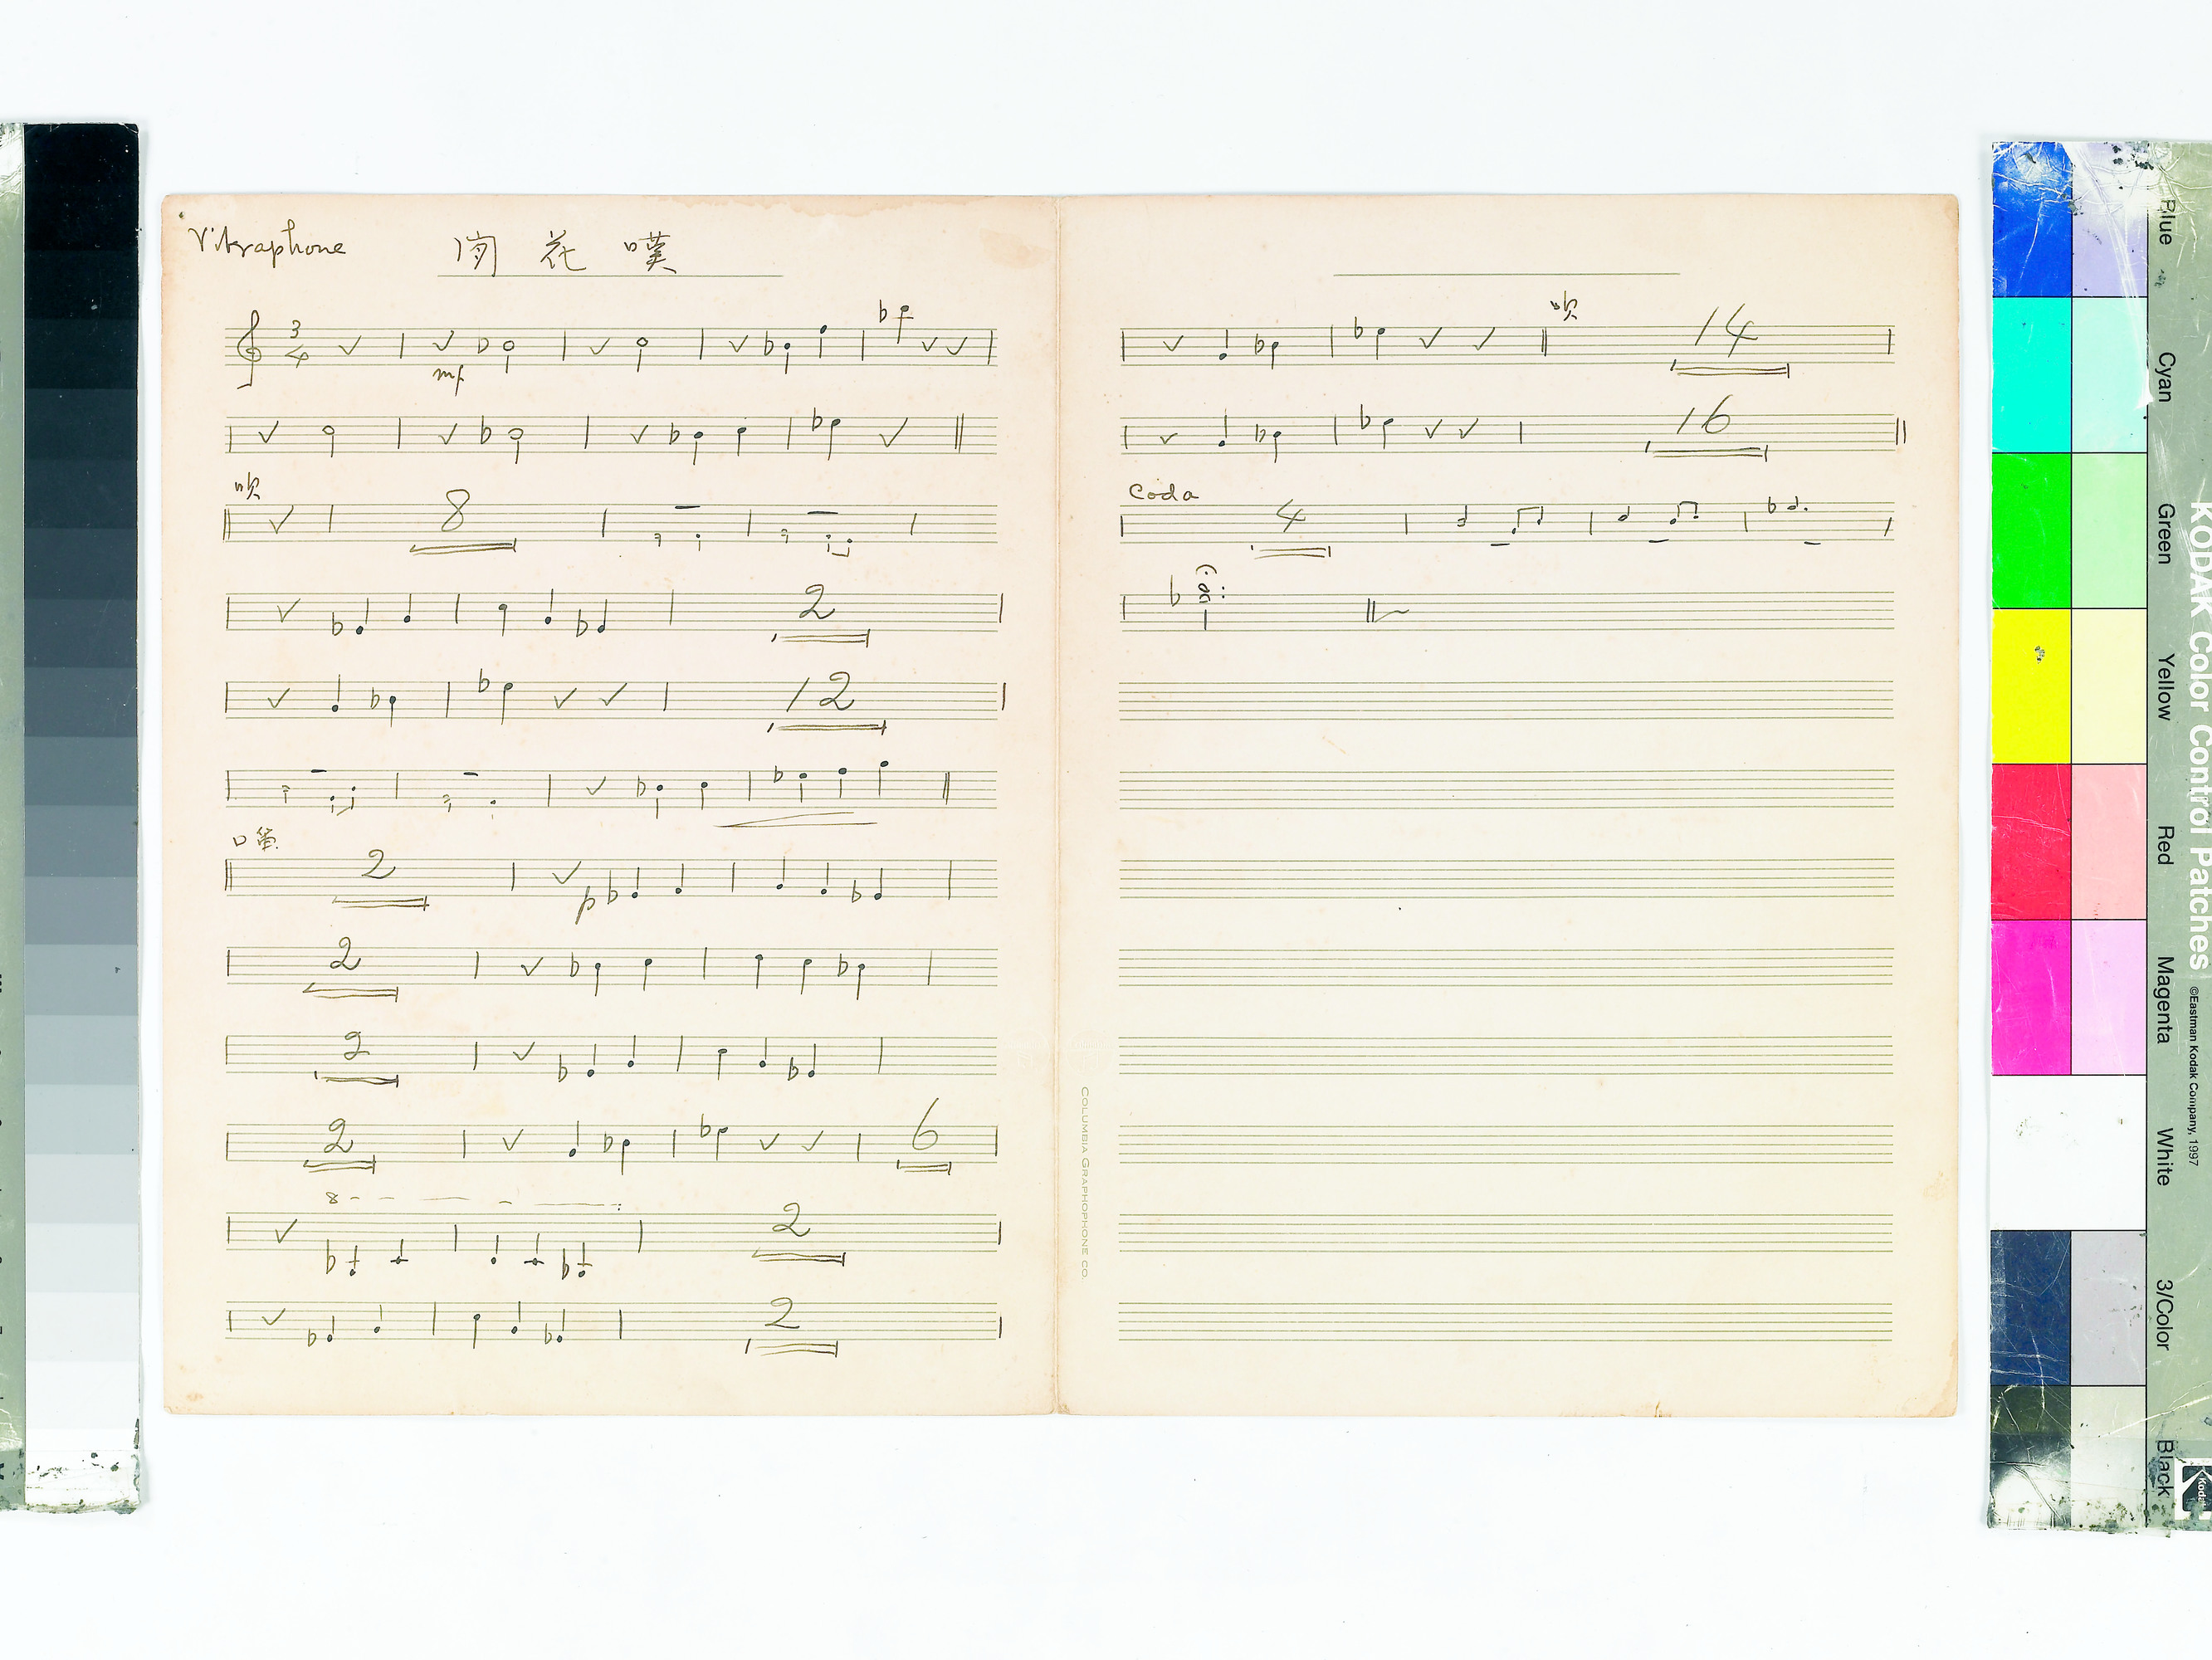 Vibraphone
花嘆
3
4
mp
吹
8
2
12
口笛
2
p
2
2
2
6
8
2
2
COLUMBIA GRAPHOPHONE CO.
吹
14
16
Coda
4
Blue
Cyan
Green
Yellow
Red
Magenta
White
3/Color
Black
KODAK Color Control Patches
©Eastman Kodak Company, 1997
Kodak